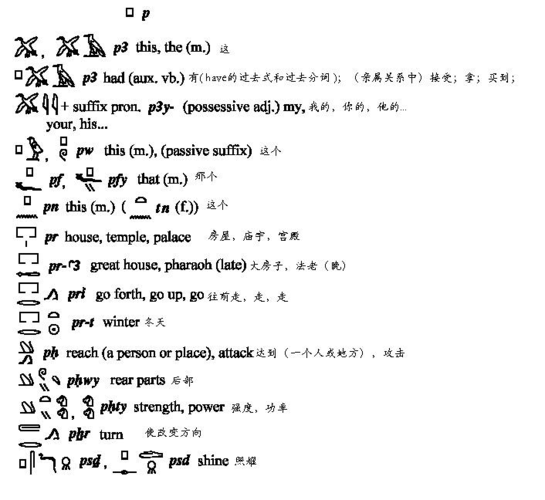 p
, p3 this, the (m.) 这
p3 had (aux. vb.) 有(have的过去式和过去分词); (亲属关系中) 接受; 拿; 买到;
+ suffix pron. p3y- (possessive adj.) my, 我的, 你的, 他的...
your, his...
, pw this (m.), (passive suffix) 这个
pf, pfy that (m.) 那个
pn this (m.) ( tn (f.)) 这个
pr house, temple, palace 房屋, 庙宇, 宫殿
pr-ꜥ3 great house, pharaoh (late) 大房子, 法老 (晚)
pri go forth, go up, go 往前走, 走, 走
pr-t winter 冬天
pḥ reach (a person or place), attack 达到 (一个人或地方), 攻击
pḥwy rear parts 后部
, pḥty strength, power 强度, 功率
pẖr turn 使改变方向
psd, psd shine 照耀